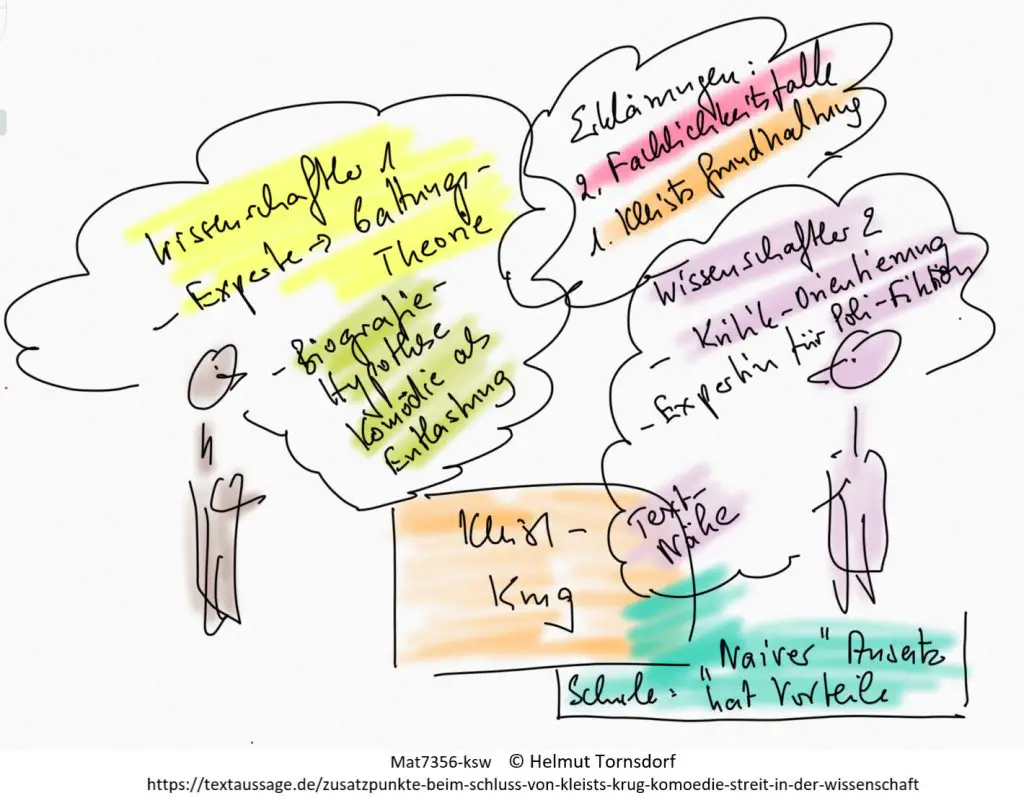 Erklärungen:
2. Fachlichkeitsfalle
1. Kleists Grundhaltung
Wissenschaftler 1
- Experte → Gattungs-
Theorie
- Biografie-
Hypothese
Komödie als
Entlastung
Wissenschaftler 2
- Kritik-Orientierung
- Expertin für Poli-Fiktion
Text-
Nähe
Kleist -
Krug
Schule: "Naiver" Ansatz
hat Vorteile
Mat7356-ksw © Helmut Tornsdorf
https://textaussage.de/zusatzpunkte-beim-schluss-von-kleists-krug-komoedie-streit-in-der-wissenschaft